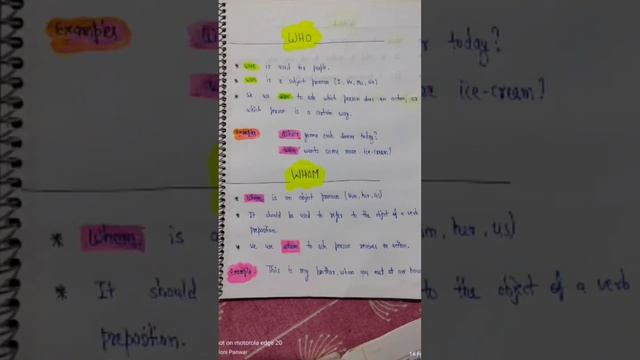 WHO
* Who is used for people.
* Who is a subject pronoun (I,
* We use who to ask which person does an action or
which person is a certain way.
Examples gonna cook dinner today?
Who wants some more ice-cream?
WHOM
* Whom is an object pronoun (him, her, us)
* It should be used to refer to the object of a verb
preposition.
* We use whom to ask person receives an action.
Example: This is my brother, whom you met at our
ot on motorola edge 20
loni Panwar
14
Examples
today?
ice-cream?
* Whom is
her, us)
* It should
to the object of a verb
preposition.